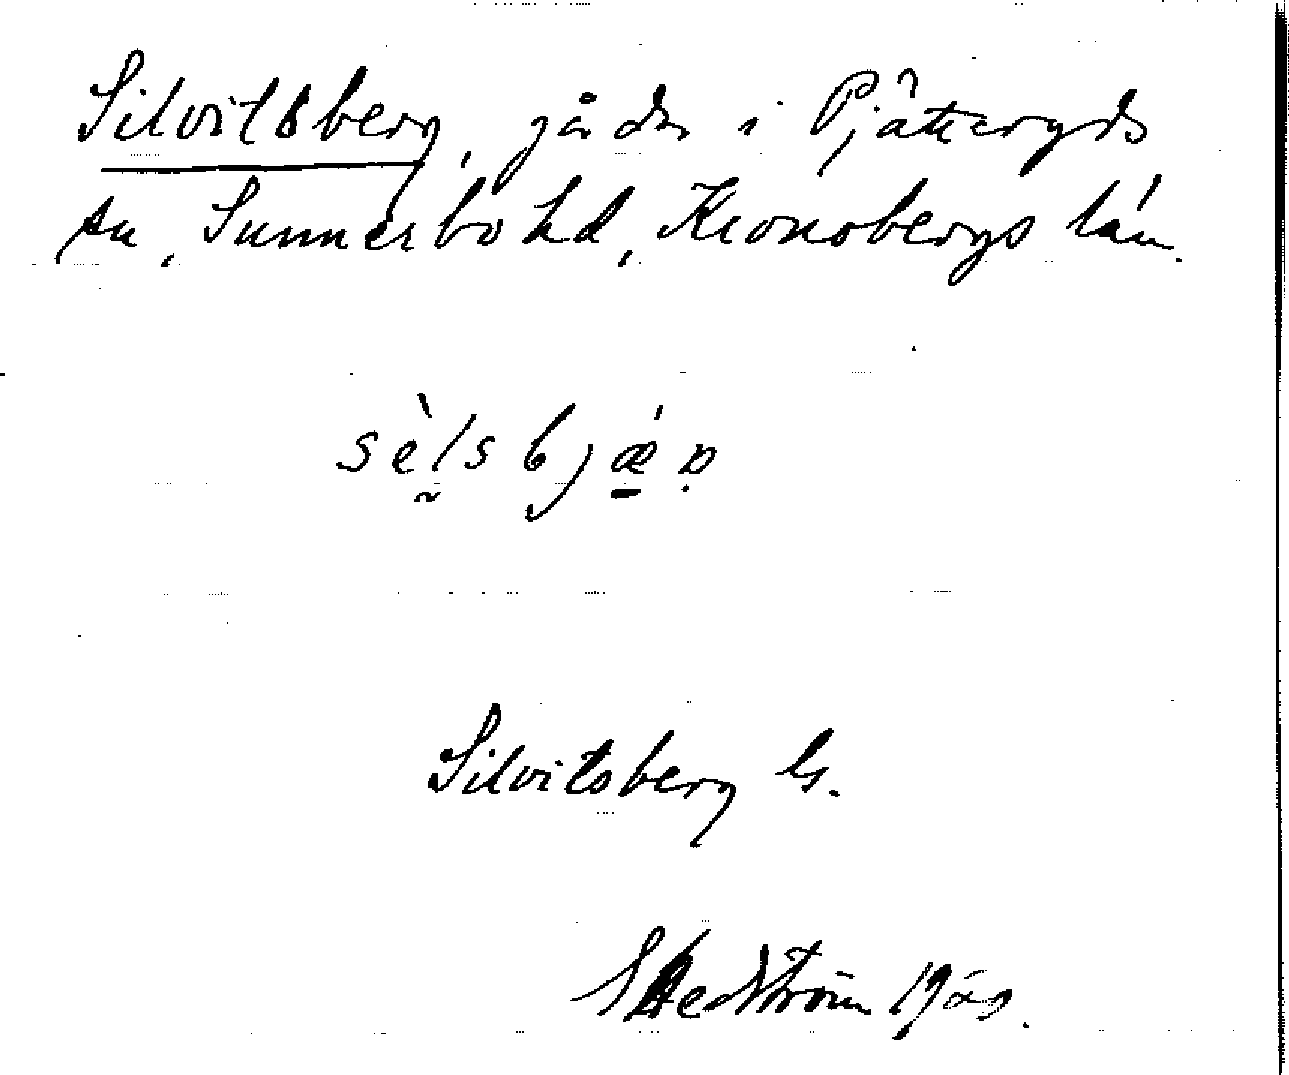 Silvitsberg, gården i Pjätteryds
sn, Sunnerbo hd, Kronobergs län.
sèlsbjǽr
Silvitsberg Gs.